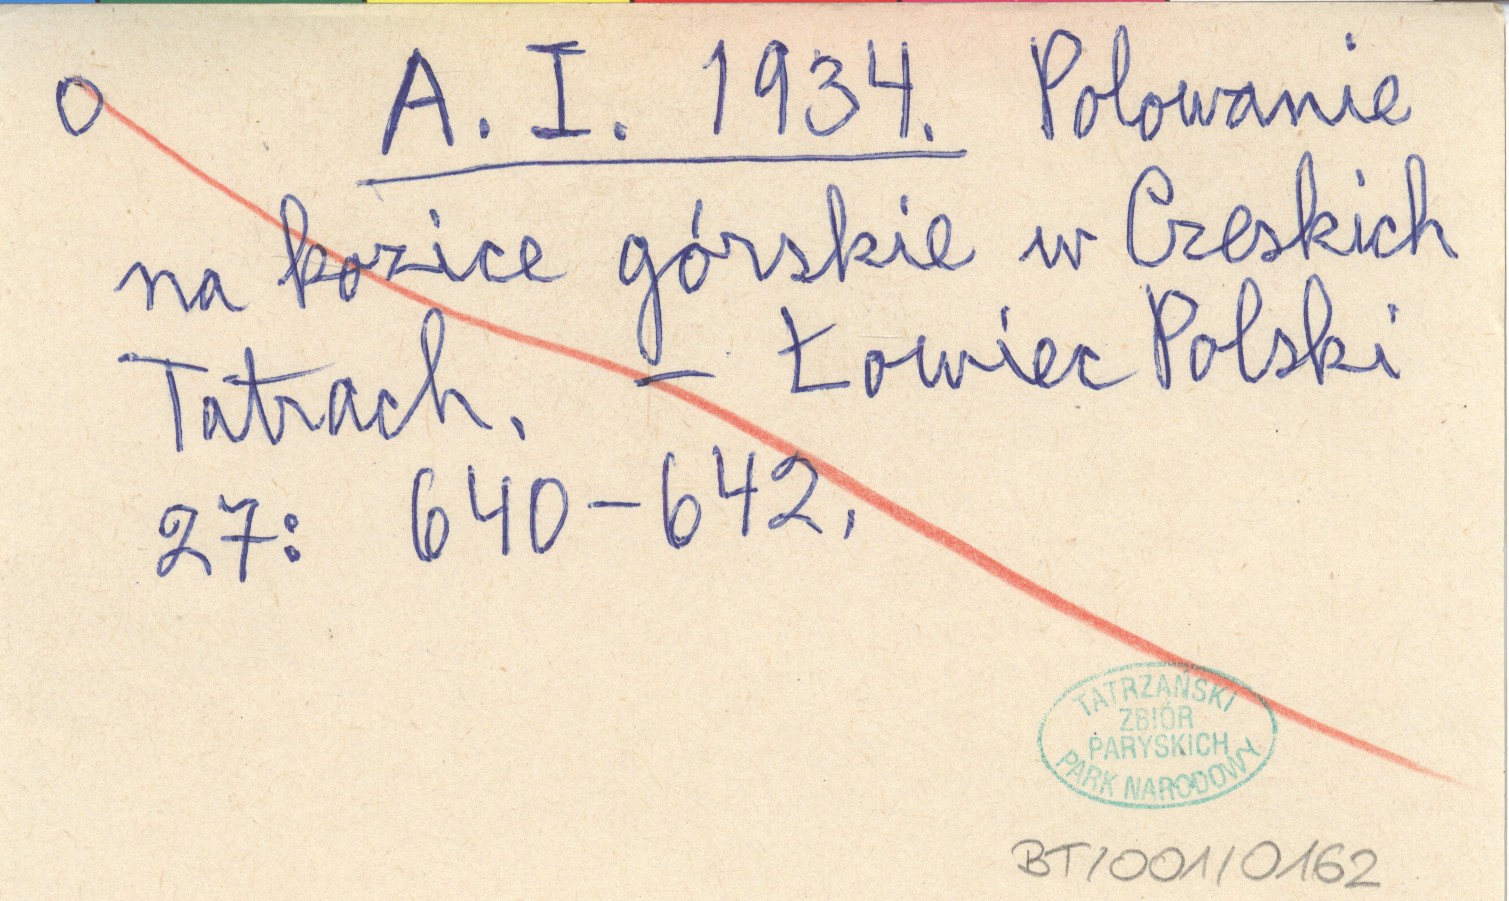 O A. I. 1934. Polowanie
na kozice górskie w Czeskich
Tatrach. – Łowiec Polski
27: 640–642.
TATRZAŃSKI
ZBIÓR
PARYSKICH
PARK NARODOWY
BT/001/0162